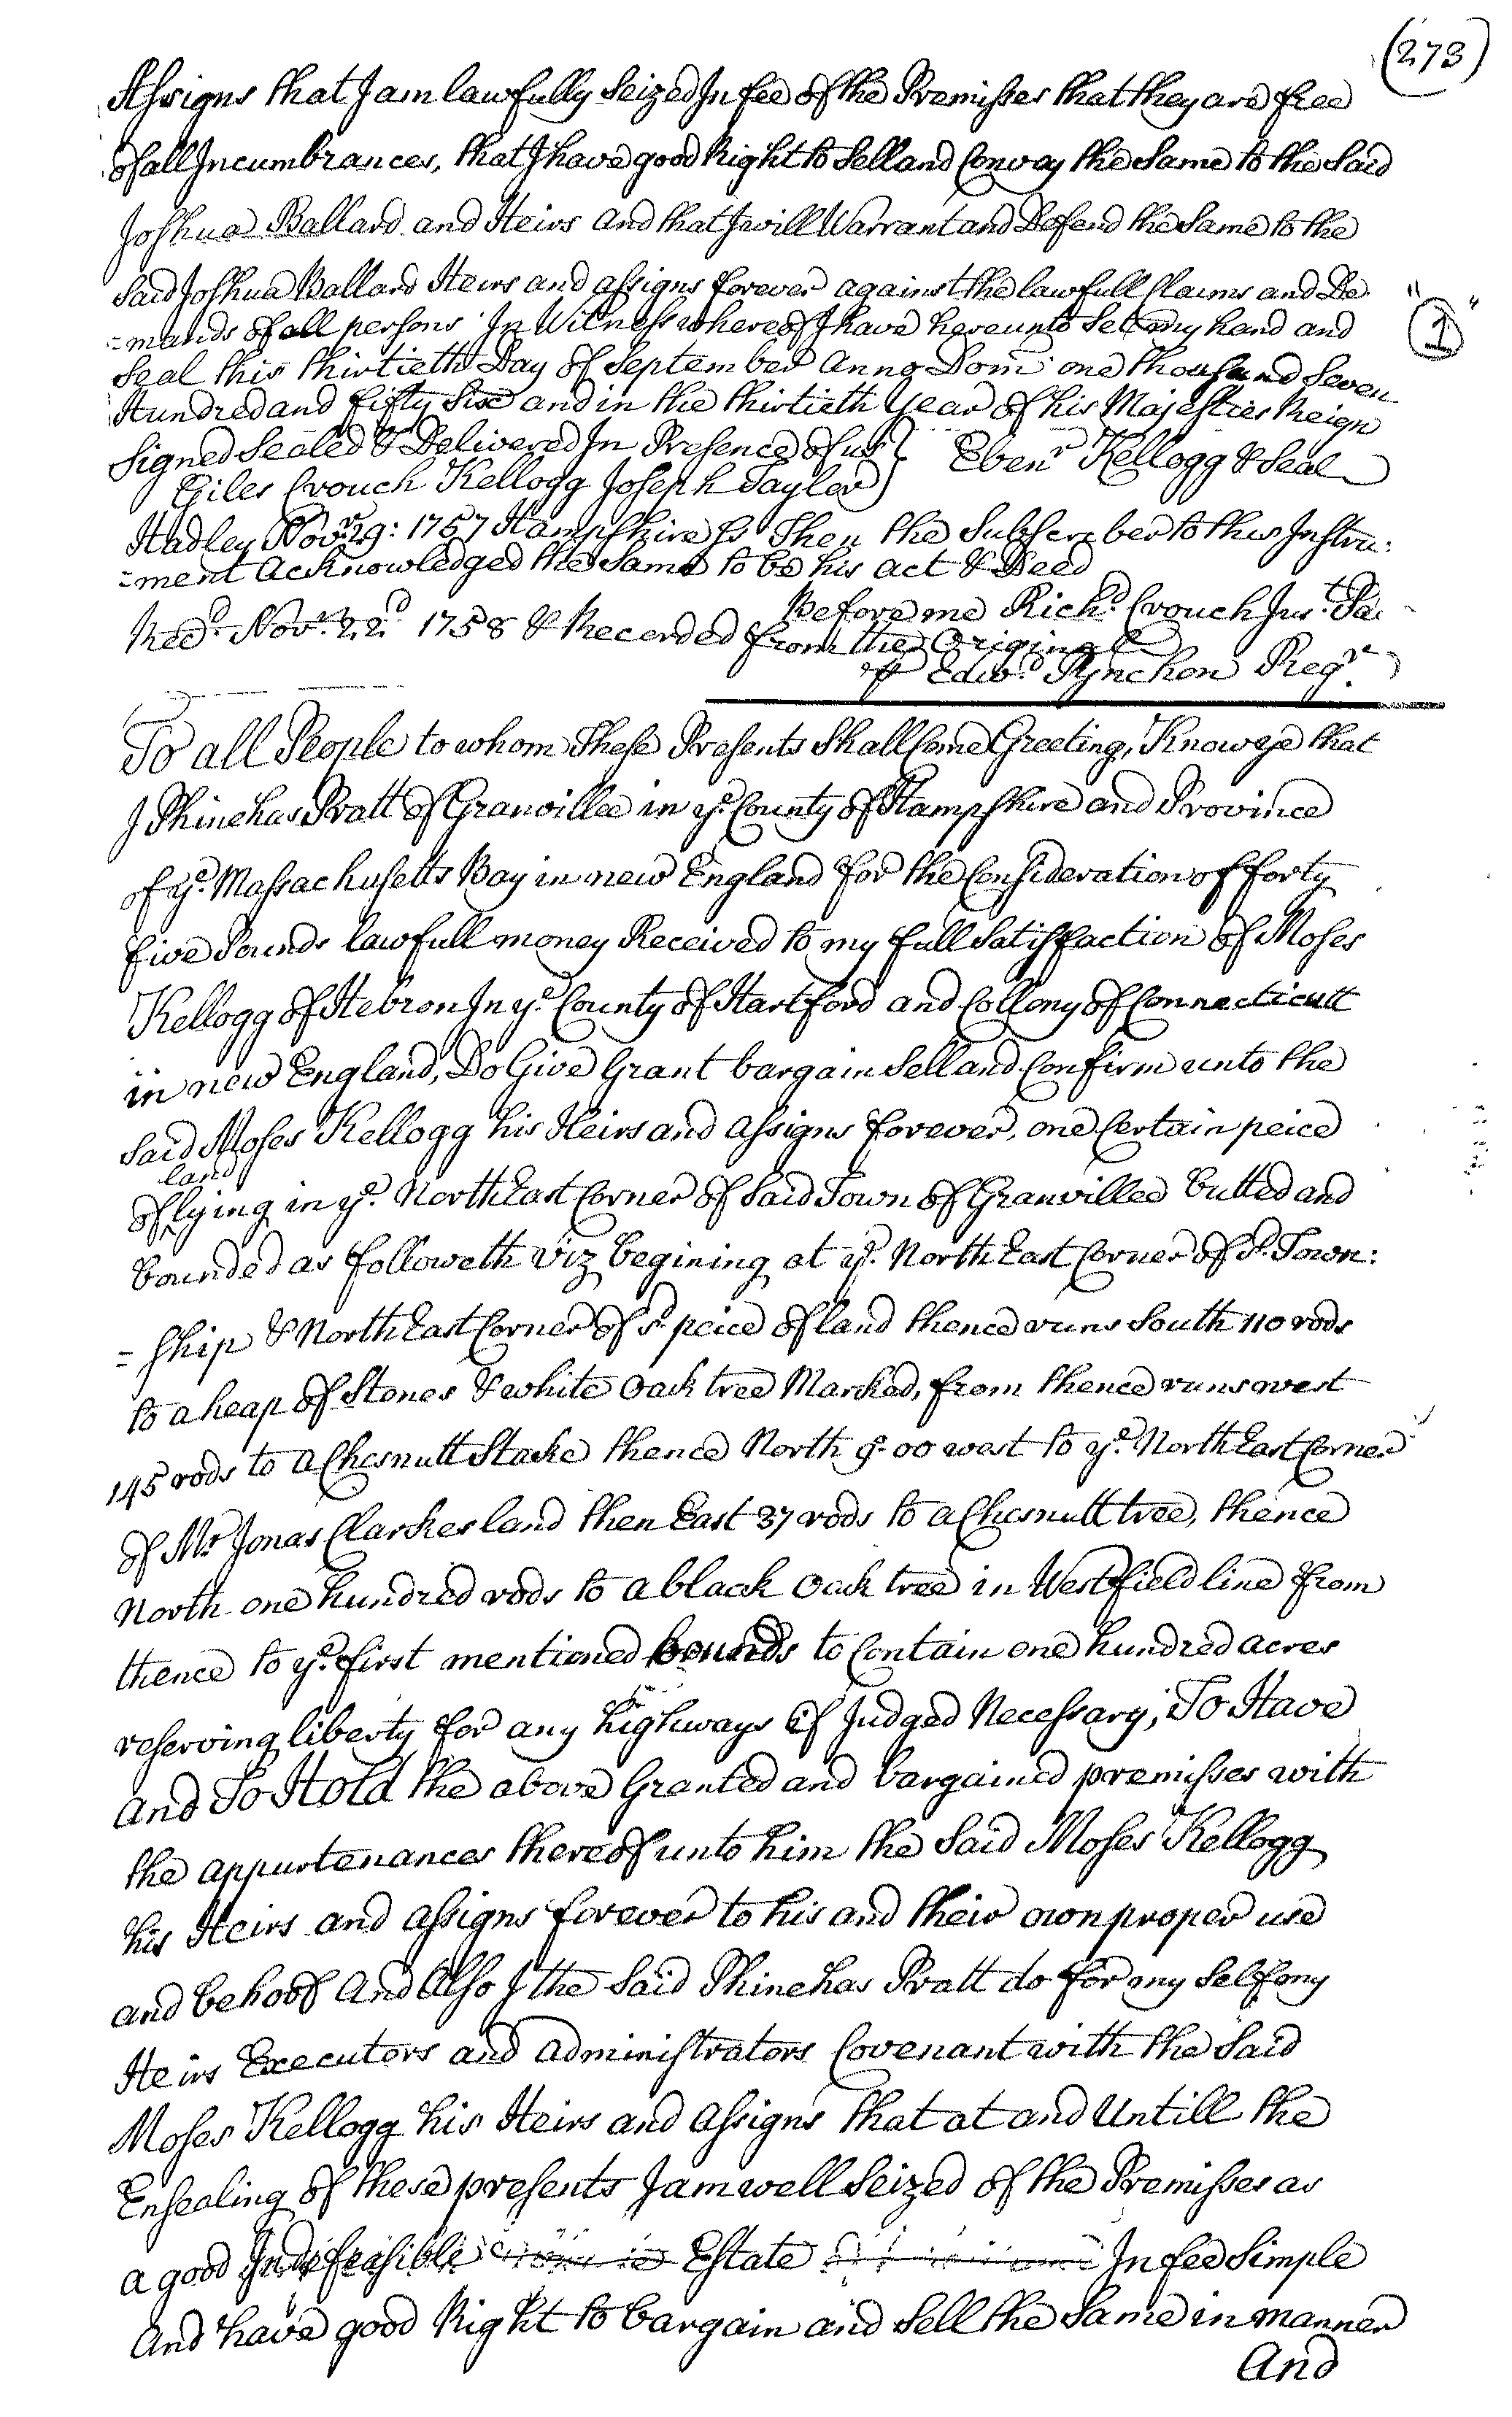 (273)
Assigns that I am lawfully Seized In fee of the Premisses that they are free
of all Incumbrances, that I have good Right to Sell and Convay the Same to the Said
Joshua Ballard and Heirs and that I will Warrant and Defend the Same to the
Said Joshua Ballard Heirs and assigns forever against the lawfull Claims and De
=mands of all persons In Witness whereof I have hereunto Set my hand and
Seal this thirtieth Day of September Anno Dom: one thousand Seven
Hundred and fifty Six and in the thirtieth Year of his Majesties Reign
Signed Sealed & Delivered In Presence of us } Ebenr Kellogg & Seal
Giles Crouch Kellogg Joseph Tayler
Hadley Novr 29: 1757 Hampshire Ss Then the Subscriber to this Instru:
=ment Acknowledged the Same to be his act & Deed
Before me Richd Crouch Just Pa:
Recd Novr 22d 1758 & Recorded from the Original
Edwd Pynchon Regr
"1"
To all People to whom These Presents Shall Come Greeting, Know ye that
I Phinehas Pratt of Granvillee in ye County of Hampshire and Province
of ye Massachusetts Bay in new England for the Consideration of forty
five Pounds lawfull money Received to my full Satisfaction of Moses
Kellogg of Hebron In ye County of Hartford and Collony of Connecticutt
in new England, Do Give Grant bargain Sell and Confirm unto the
Said Moses Kellogg his Heirs and assigns forever, one Certain peice
land
of lying in ye North East Corner of Said Town of Granvillee butted and
bounded as followeth viz begining at ye North East Corner of sd Town:
=ship & North East Corner of sd peice of land thence runs South 110 rods
to a heap of Stones & white Oack tree Marked, from thence runs west
145 rods to a Chesnutt Stacke thence North 9:00 west to ye North East Corner
of Mr Jonas Clarkes land then East 37 rods to a Chesnutt tree, thence
North one hundred rods to a black Oack tree in Westfield line from
thence to ye first mentioned bounds to Contain one hundred acres
reserving liberty for any highways if Judged Necessary; To Have
and To Hold the above Granted and bargained premisses with
the appurtenances thereof unto him the Said Moses Kellogg
his Heirs and assigns forever to his and their own proper use
and behoof And Also I the Said Phinehas Pratt do for my Self my
Heirs Executors and administrators Covenant with the Said
Moses Kellogg his Heirs and assigns that at and Untill the
Ensealing of these presents I am well Seized of the Premisses as
a good Indefeasible Estate In fee Simple
And have good Right to bargain and Sell the Same in manner
And